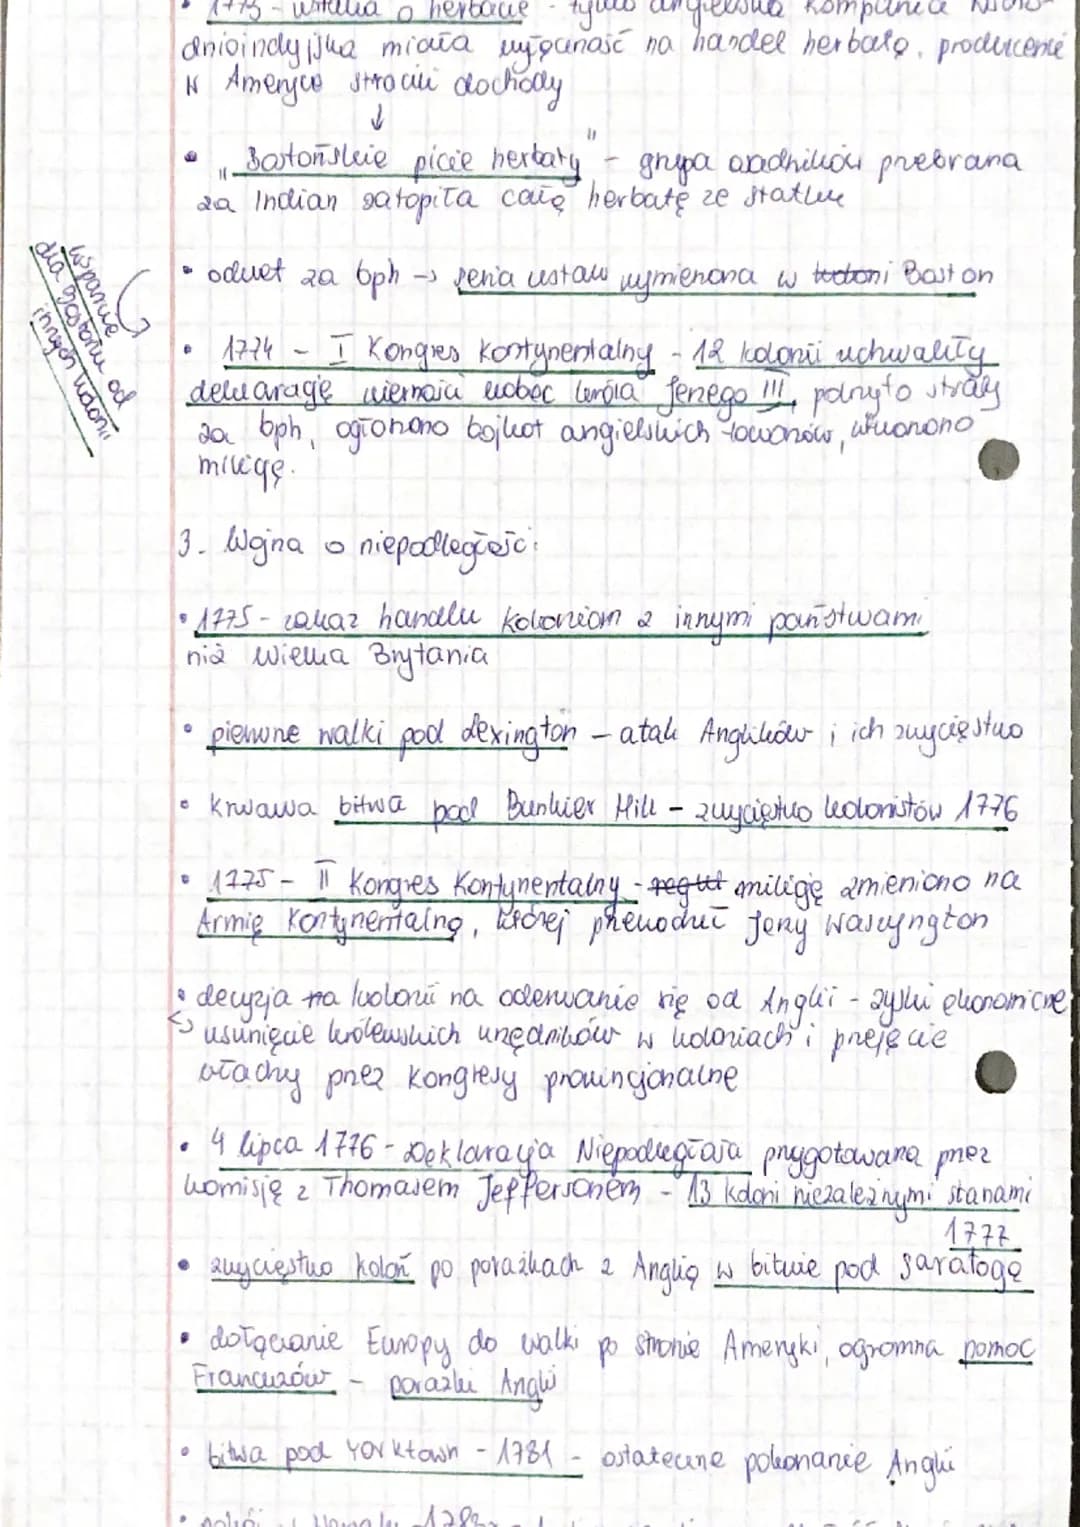 • 1773 - ustawa o herbacie - tylko angielska Kompania Wscho-
dnioindyjska miała wyłączność na handel herbatą, producenci
w Ameryce stracili dochody
↓
• „Bostońskie picie herbaty" - grupa osadników przebrana
za Indian zatopiła całą herbatę ze statku
• odwet za bph → seria ustaw wymierzona w Boston
wsparcie
dla Bostonu od
innych kolonii
• 1774 - I Kongres Kontynentalny - 12 kolonii uchwaliły
deklarację wierności wobec króla Jerzego III, pokryto straty
za bph, ogłoszono bojkot angielskich towarów, utworzono
milicję.
3. Wojna o niepodległość:
• 1775 - zakaz handlu koloniom z innymi państwami
niż Wielka Brytania
• pierwsze walki pod Lexington - atak Anglików i ich zwycięstwo
• krwawa bitwa pod Bunkier Hill - zwycięstwo kolonistów 1776
• 1775 - II Kongres Kontynentalny - milicję zmieniono na
Armię Kontynentalną, której przewodził Jerzy Waszyngton
• decyzja kolonii na oderwanie się od Anglii - zyski ekonomiczne
↳ usunięcie królewskich urzędników w koloniach i przejęcie
władzy przez kongresy prowincjonalne
• 4 lipca 1776 - Deklaracja Niepodległości przygotowana przez
komisję z Thomasem Jeffersonem - 13 kolonii niezależnymi stanami
1777
• zwycięstwo kolonii po porażkach z Anglią w bitwie pod Saratogą
• dołączanie Europy do walki po stronie Ameryki, ogromna pomoc
Francuzów - porażki Anglii
• bitwa pod Yorktown - 1781 - ostateczne pokonanie Anglii
• pokój 1783